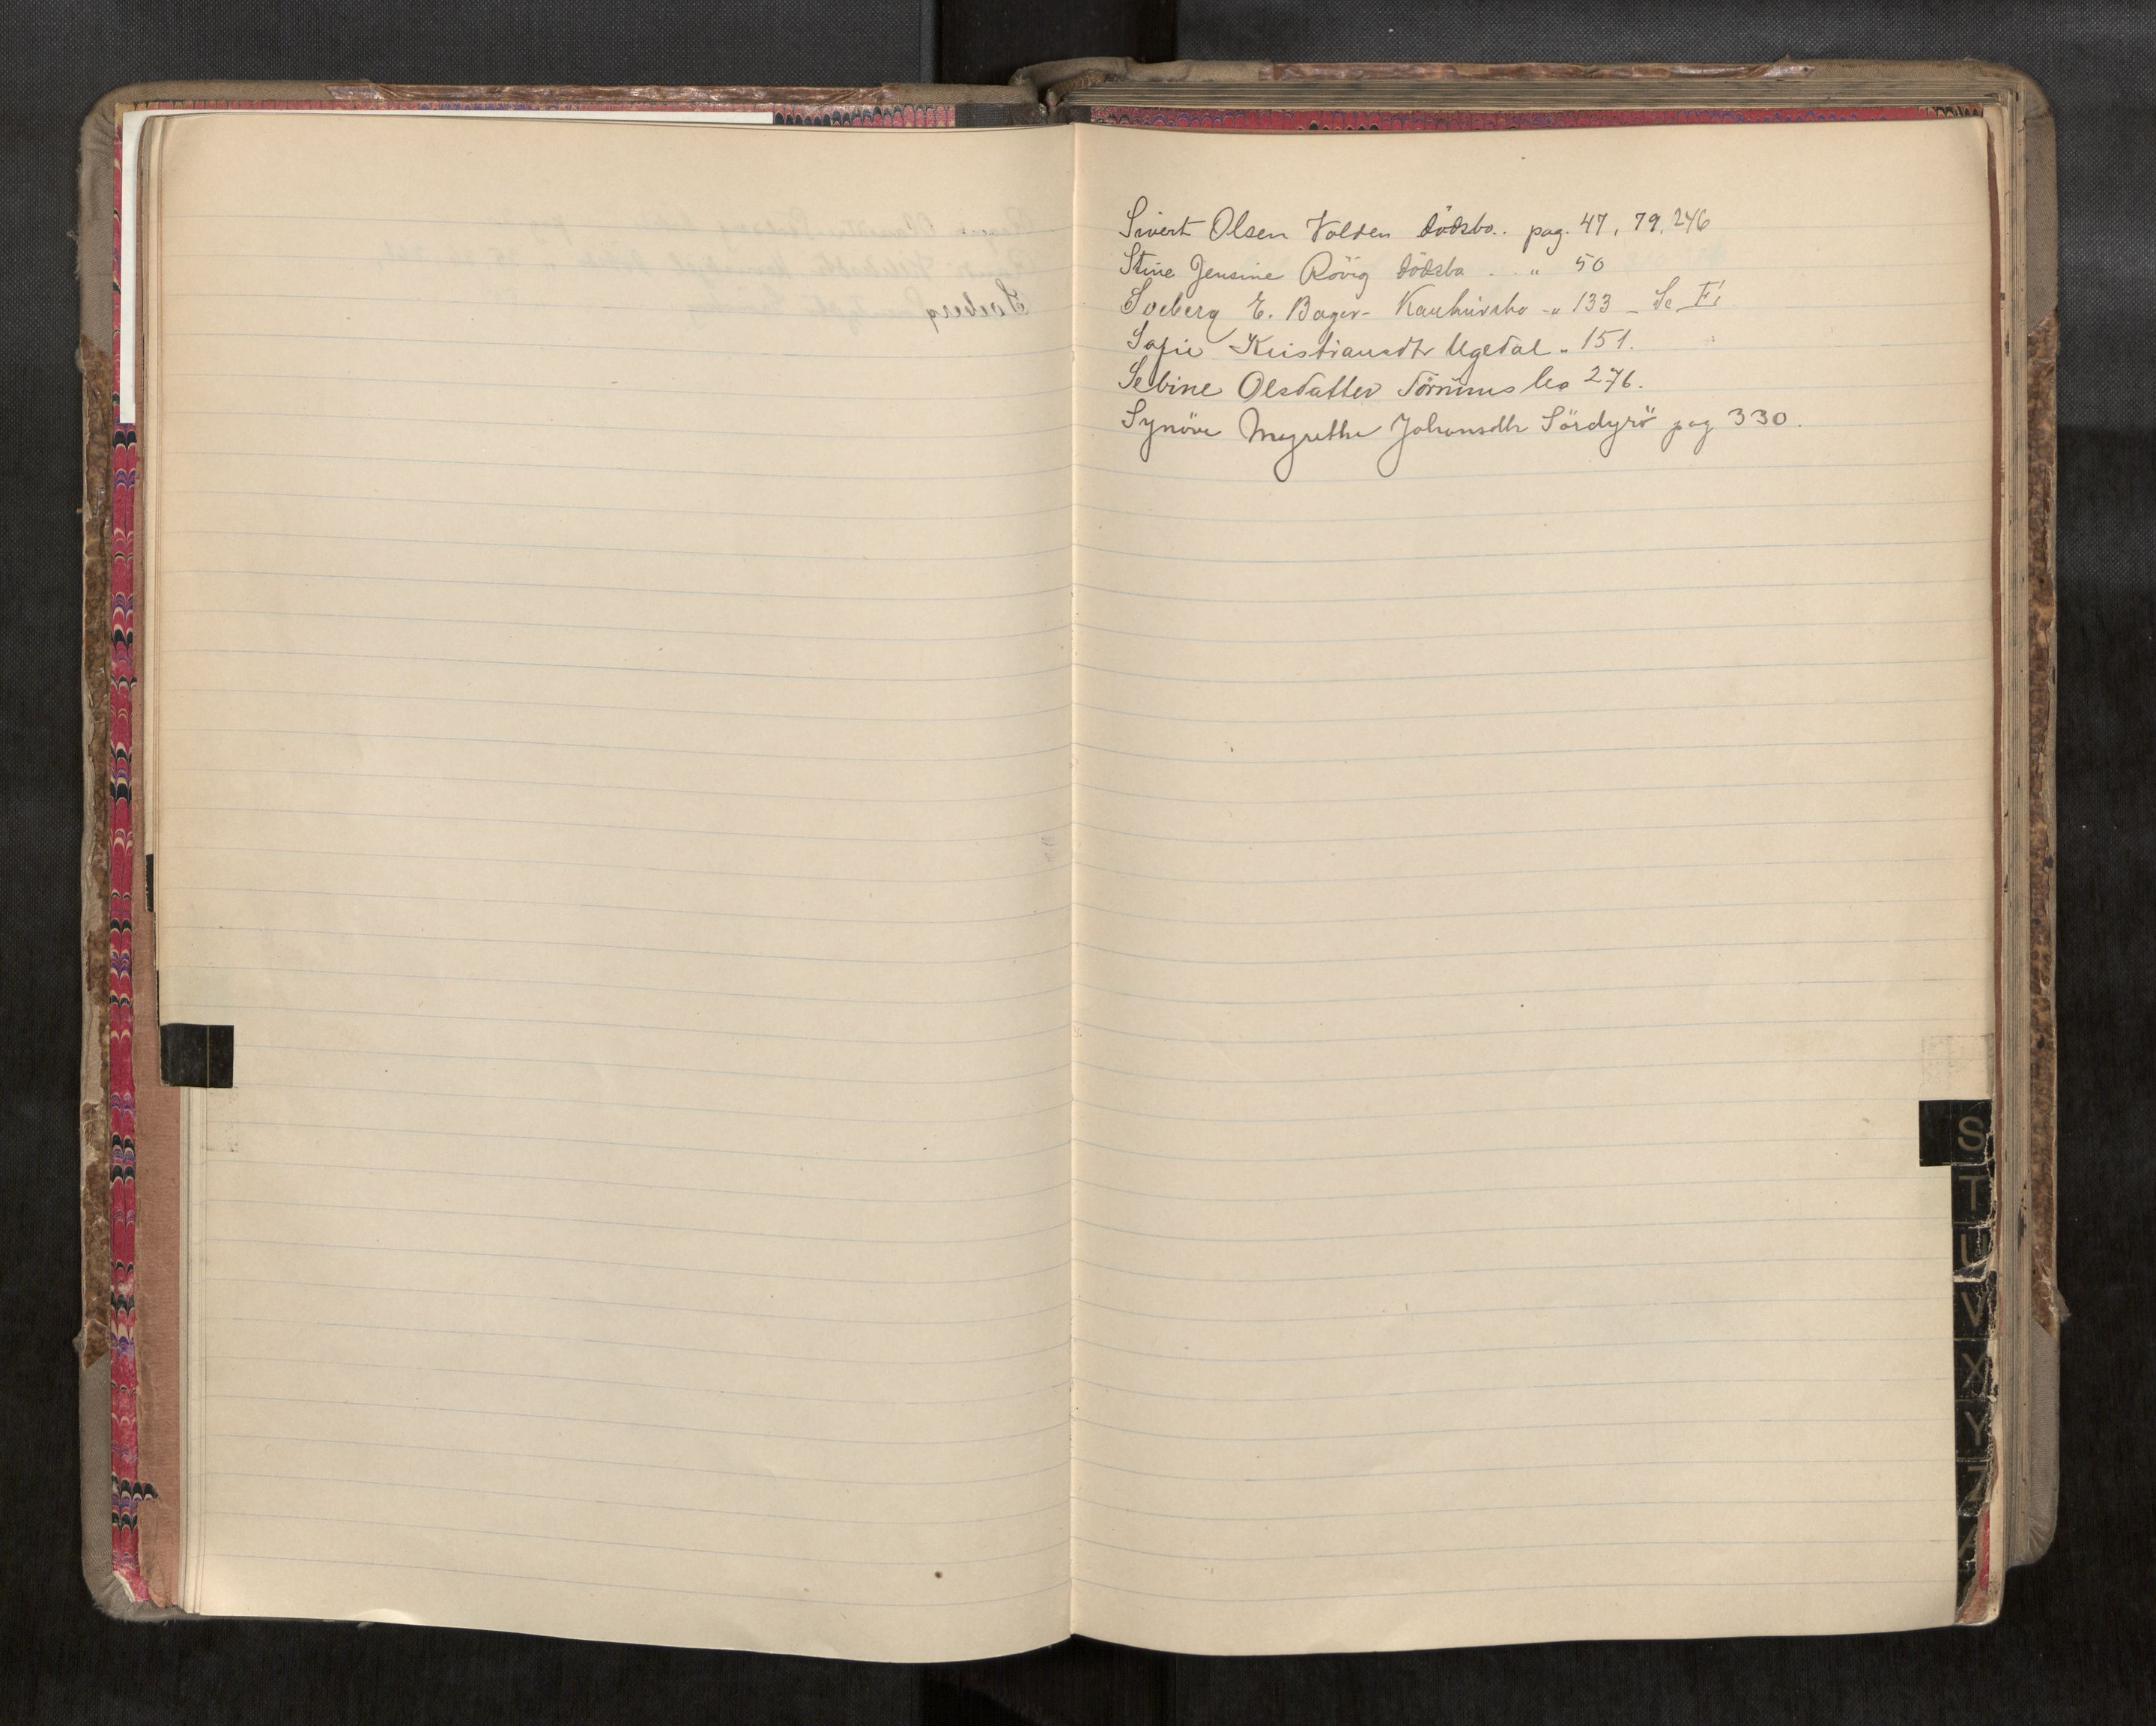 Sivert Olsen Volden dödsbo.. pag. 47, 79, 246
Stine Jensine Rövig dödsbo . . " 50
Soeberg E. Bager- Konkursbo -" 133 - Se F.
Sofie Kristiansdtr Ugedal " 151.
Sebine Olsdatter 276.
Synöve Myrethe Johansdtr Sördyrö pag 330.
S
T
U
V
X
Y
Z